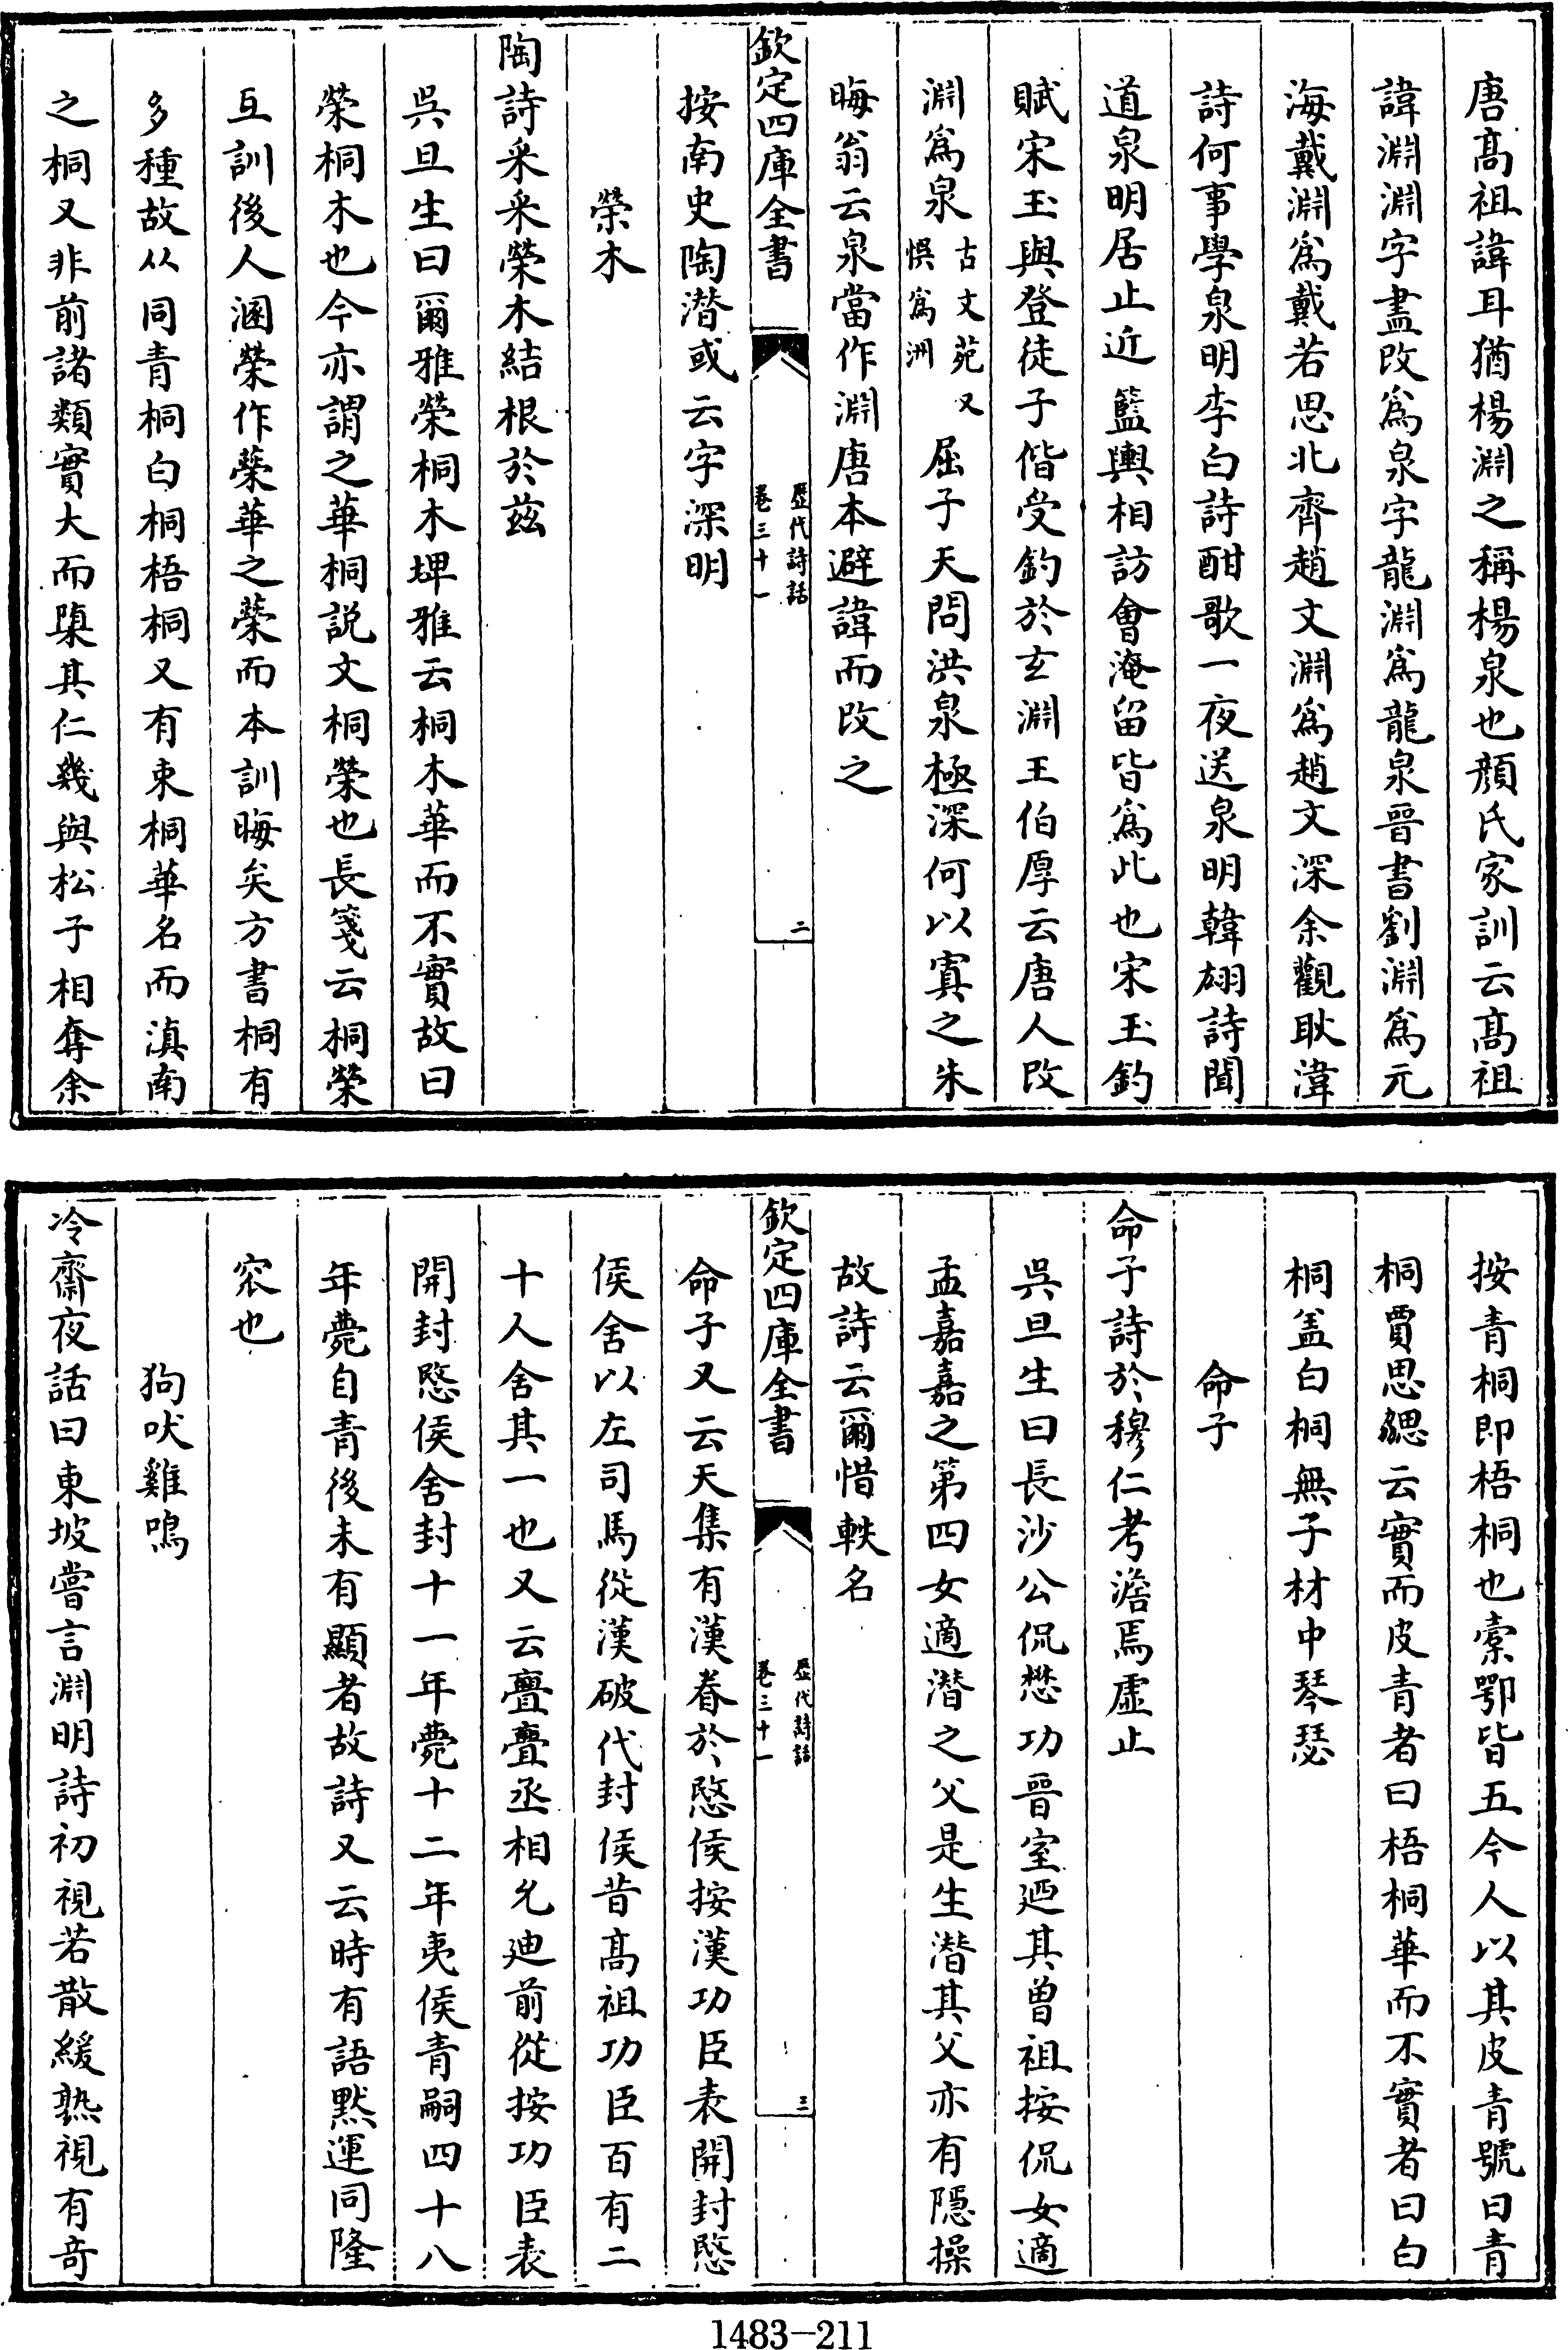 唐高祖諱耳猶楊淵之稱楊泉也顏氏家訓云高祖
諱淵淵字盡改爲泉字龍淵爲龍泉晉書劉淵爲元
海戴淵爲戴若思北齊趙文淵爲趙文深余觀耿湋
詩何事學泉明李白詩酣歌一夜送泉明韓翃詩聞
道泉明居止近籃輿相訪會淹留皆爲此也宋玉釣
賦宋玉與登徒子偕受釣於玄淵王伯厚云唐人改
淵爲泉古文苑又悞爲洲屈子天問洪泉極深何以寘之朱
晦翁云泉當作淵唐本避諱而改之
欽定四庫全書
歷代詩話
卷三十一
二
按南史陶潛或云字深明
榮木
陶詩采采榮木結根於茲
吳旦生曰爾雅榮桐木埤雅云桐木華而不實故曰
榮桐木也今亦謂之華桐説文桐榮也長箋云桐榮
互訓後人溷榮作蘂華之蘂而本訓晦矣方書桐有
多種故从同青桐白桐梧桐又有朿桐華名而滇南
之桐又非前諸類實大而䆃其仁幾與松子相奪余
按青桐即梧桐也橐鄂皆五今人以其皮青號曰青
桐賈思勰云實而皮青者曰梧桐華而不實者曰白
桐盖白桐無子材中琴瑟
命子
命子詩於穆仁考澹焉虛止
吳旦生曰長沙公侃懋功晉室廼其曾祖按侃女適
孟嘉嘉之第四女適潛之父是生潛其父亦有隱操
故詩云爾惜軼名
欽定四庫全書
歷代詩話
卷三十一
三
命子又云天集有漢眷於愍侯按漢功臣表開封愍
侯舍以左司馬從漢破代封侯昔高祖功臣百有二
十人舍其一也又云亹亹丞相允廸前從按功臣表
開封愍侯舍封十一年薨十二年夷侯青嗣四十八
年薨自青後未有顯者故詩又云時有語默運同隆
窊也
狗吠雞鳴
冷齋夜話曰東坡嘗言淵明詩初視若散緩熟視有奇
1483-211